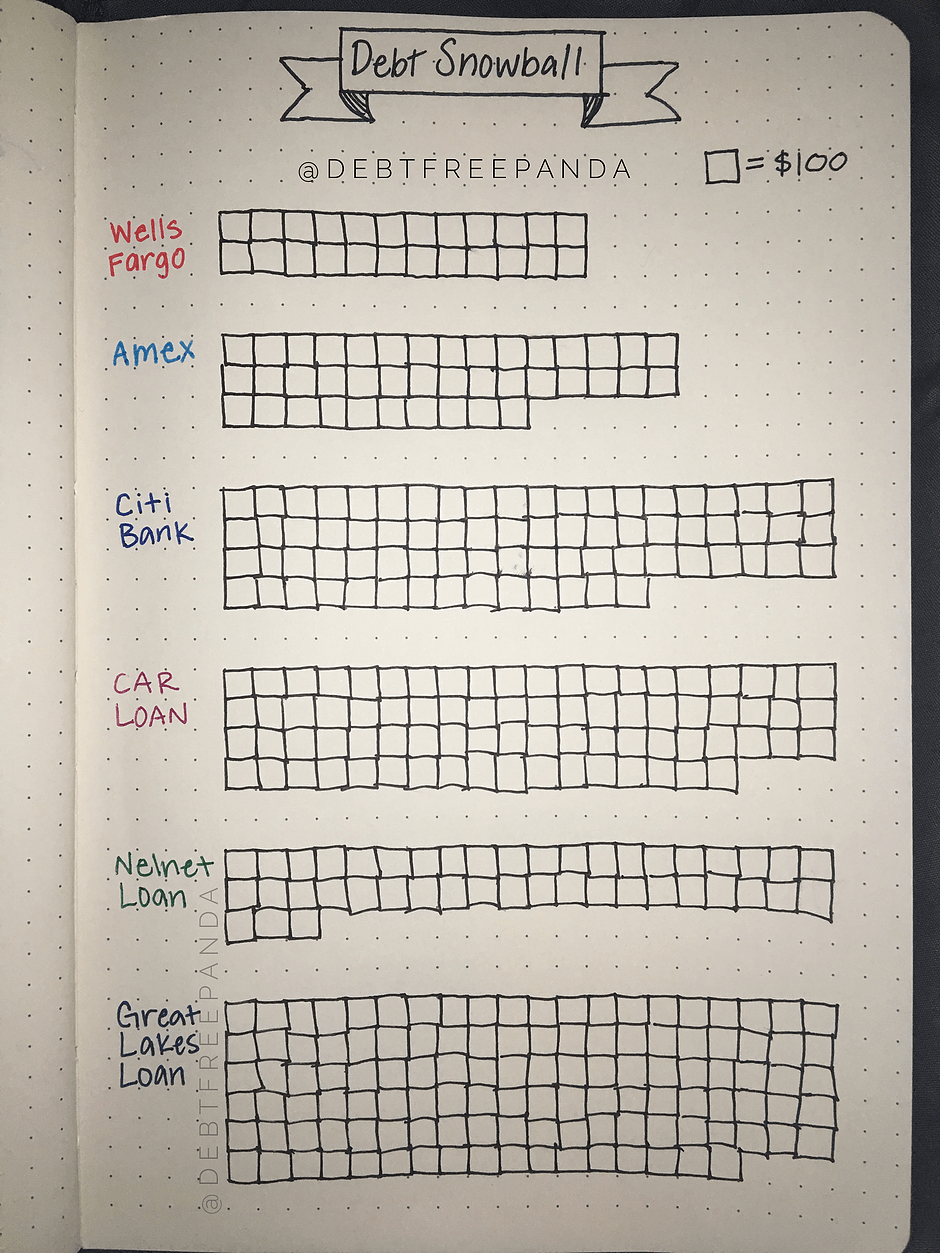 Debt Snowball
@DEBTFREEPANDA
= $100
Wells
Fargo
Amex
Citi
Bank
CAR
LOAN
Nelnet
Loan
Great
Lakes
Loan
@DEBTFREEPANDA